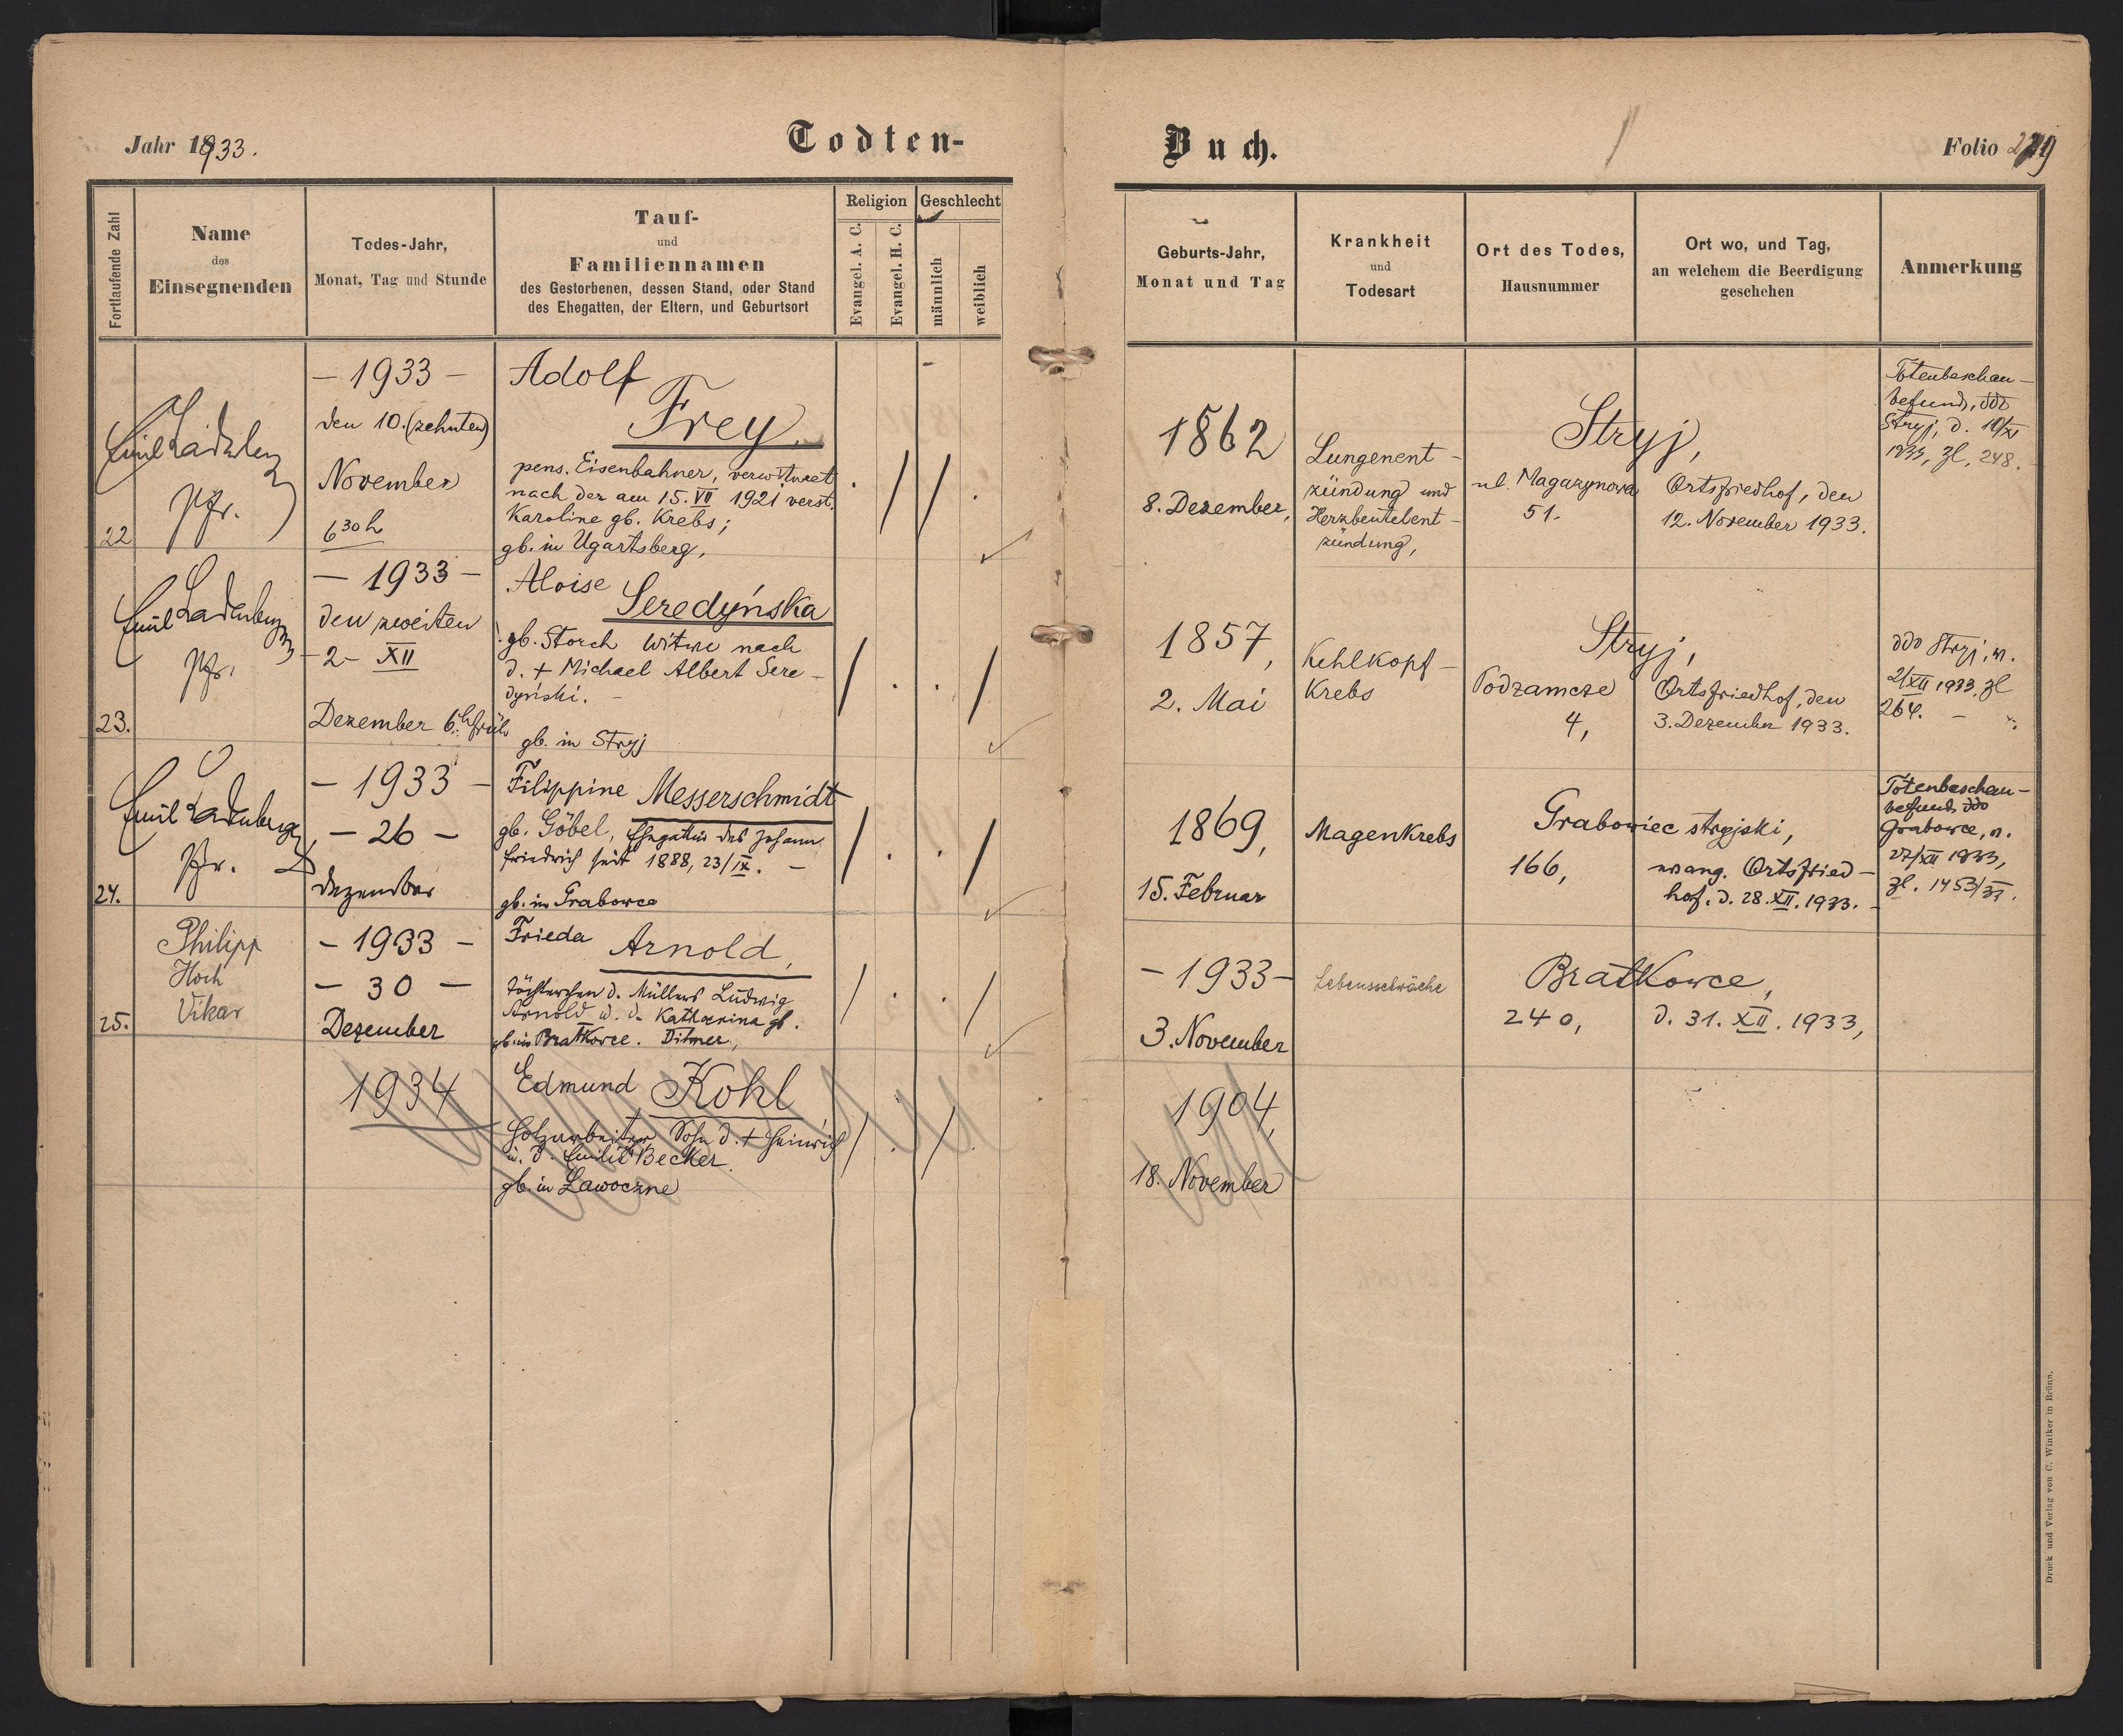 Jahr 1933.
Todten-
Buch.
Folio
Fortlaufende Zahl
Name
des
Einsegnenden
Todes-Jahr,
Monat, Tag und Stunde
Tauf-
und
Familiennamen
des Gestorbenen, dessen Stand, oder Stand
des Ehegatten, der Eltern, und Geburtsort
Religion
Evangel. A. C.
Evangel. H. C.
Geschlecht
männlich
weiblich
Geburts-Jahr,
Monat und Tag
Krankheit
und
Todesart
Ort des Todes,
Hausnummer
Ort wo, und Tag,
an welchem die Beerdigung
geschehen
Anmerkung
22
Emil Ladenberger
Pfr.
- 1933 -
den 10. (zehnten)
November
6 30 h
Adolf
Frey,
pens. Eisenbahner, verwitwet
nach der am 15. VII 1921 verst.
Karoline gb. Krebs;
gb. in Ugartsberg,
1862
8. Dezember,
Lungenent-
zündung und
Herzbeutelent-
zündung,
Stryj,
ul. Magazynowa
51.
Ortsfriedhof, den
12. November 1933.
Totenbeschau-
befund, ddo
Stryj, d. 10/XI
1933, Zl. 248.
23.
Emil Ladenberger
Pfr.
- 1933 -
den zweiten
- 2 - XII
Dezember 6 h früh
Aloise
Seredyńska
gb. Storch Witwe nach
d. + Michael Albert Sere-
dyński. -
gb. in Stryj
1857,
2. Mai
Kehlkopf-
Krebs
Stryj,
Podzamcze
4,
Ortsfriedhof, den
3. Dezember 1933.
ddo Stryj, n.
2/XII 1933, Zl
264. -
24.
Emil Ladenberger
Pfr.
- 1933 -
- 26 -
Dezember
Filippine Messerschmidt
gb. Göbel, Ehegattin des Johann
Friedrich seit 1888, 23/IX. -
gb. in Grabowce
1869,
15. Februar
Magenkrebs
Grabowiec stryjski,
166,
evang. Ortsfried-
hof. d. 28. XII. 1933. -
Totenbeschau-
befund, ddo
Grabowce, n.
27/XII 1933,
Zl.
25.
Philipp
Hoch
Vikar
- 1933 -
- 30 -
Dezember
Frieda
Arnold,
Töchterchen d. Müllers Ludwig
Arnold u. d. Katharina gb.
gb. in Bratkowce. Ditmer,
- 1933 -
3. November
Lebensschwäche
Bratkowce,
240,
d. 31. XII. 1933,
1934
Edmund Kohl
Holzarbeiter, Sohn d. + Heinrich
u. d. Emilie Becker.
gb. in Ławoczne
1904,
18. November
Druck und Verlag von C. Winiker in Brünn.